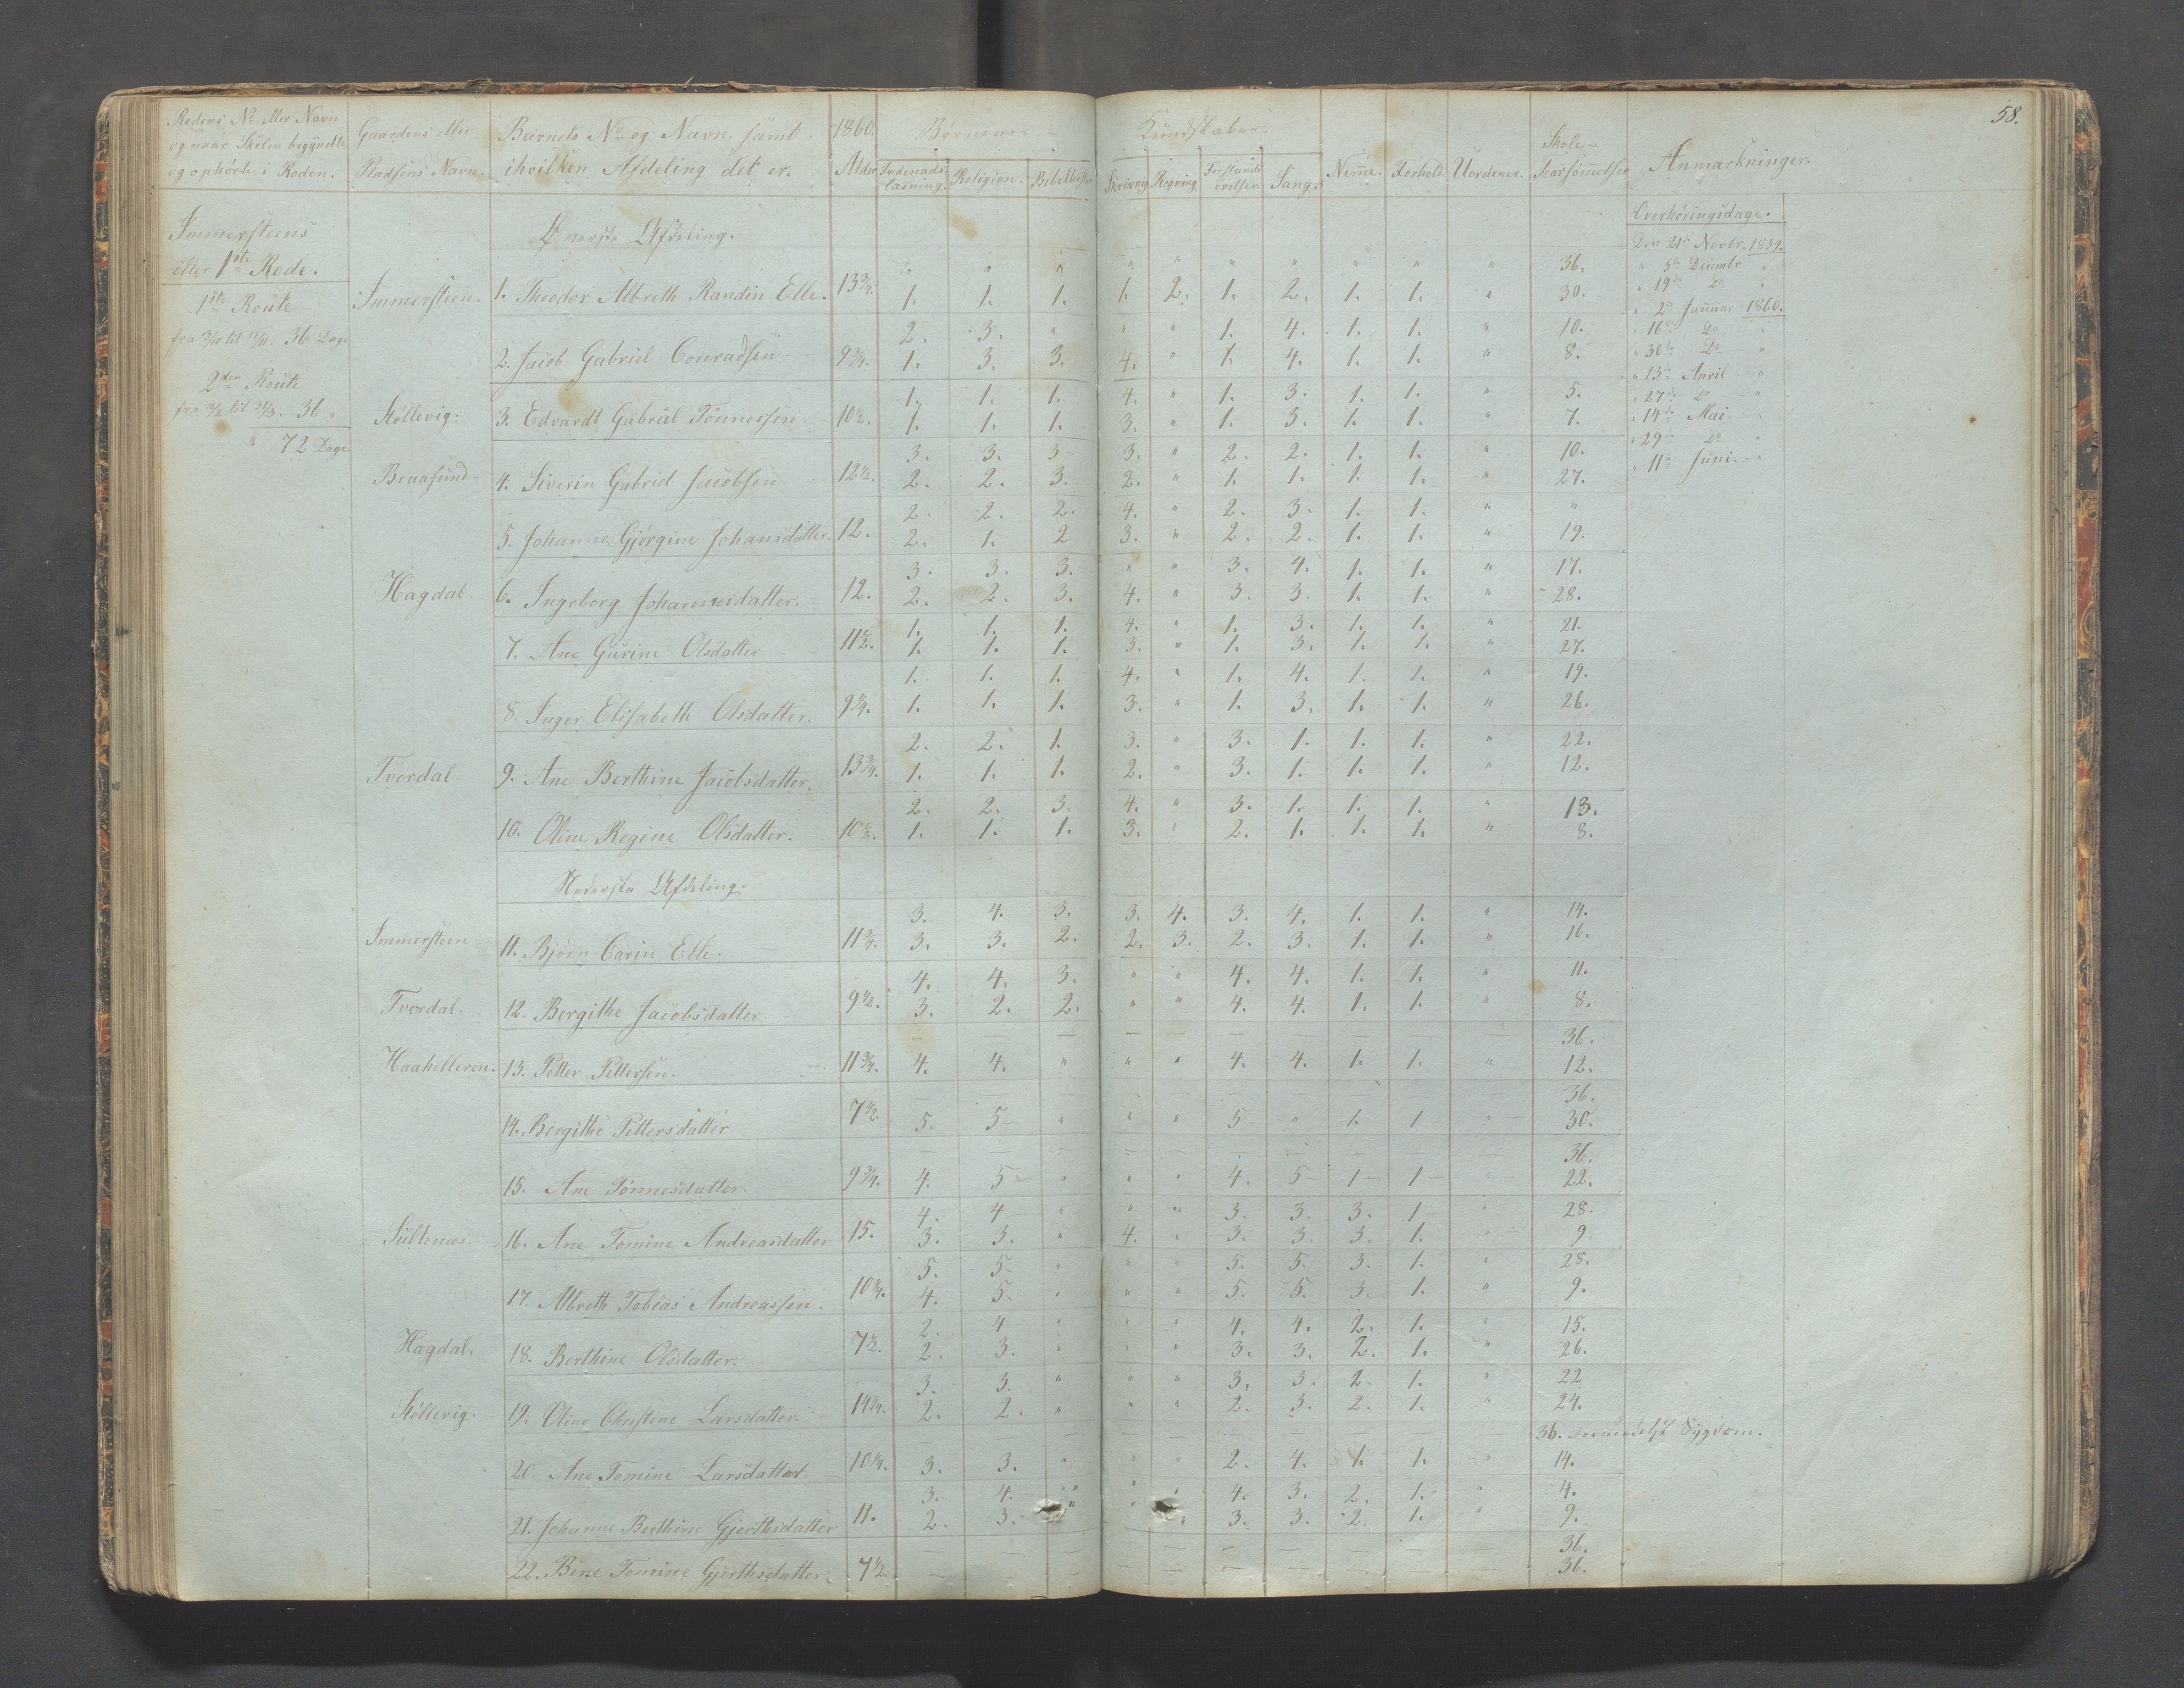 58.
Rodens No. eller Navn | Gaardens eller | Barnets No og Navn, samt | 1860. | Børnenes | Kundskaber. | Skole=
og naar Skolen begyndte | Pladsens Navn. | ihvilken Afdeling det er. | Alder | Religion. | Skrivnig | Regning | Forstands øvelser. | Sang. | Nemme. | Forhold. | Uordener. | Forsømmelser | Anmærkninger.
og ophørte i Roden.
Immersteens
eller 1ste Rode.
1ste Route
36 Dage
2den Route
36 "
" 72 Dage
Øverste Afdeling.
" " " " " " " " " " 36.
Immersteen. 1. Theodor Albreth Randin Elle. 13 3/4. 1. 1. 1. 1. 2. 1. 2. 1. 1. " 30.
2. 3. " " " 1. 4. 1. 1. " 10.
2. Jacob Gabriel Conradsen 9 3/4. 1. 3. 3. 4. " 1. 4. 1. 1. " 8.
1. 1. 1. 4. " 1. 3. 1. 1. " 5.
Støllevig. 3. Edvardt Gabriel Tønnessen. 10 1/2. 1. 1. 1. 3. " 1. 3. 1. 1. " 7.
3. 3. 3 3. " 2. 2. 1. 1. " 10.
Braasund 4. Siverin Gabriel Jacobsen 12 1/2. 2. 2. 3. 2. " 1. 1. 1. 1. " 27.
2. 2. 2. 4. " 2. 3. 1. 1. " "
5. Johanne Gjørgine Johansdatter. 12. 2. 1. 2 3. " 2. 2. 1. 1. " 19.
3. 3. 3. " " 3. 4. 1. 1. " 17.
Hagdal 6. Ingeborg Johannesdatter. 12. 2. 2. 3. 4. " 3. 3. 1. 1. " 28.
1. 1. 1. 4. " 1. 3. 1. 1. " 21.
7. Ane Gurine Olsdatter 11 1/2. 1. 1. 1. 3. " 1. 3. 1. 1. " 27.
1. 1. 1. 4. " 1. 4. 1. 1. " 19.
8. Inger Elisabeth Olsdatter. 9 1/4. 1. 1. 1. 3. " 1. 3. 1. 1. " 26.
2. 2. 1. 3. " 3. 1. 1. 1. " 22.
Tverdal 9. Ane Berthine Jacobsdatter. 13 3/4. 1. 1. 1. 2. " 3. 1. 1. 1. " 12.
2. 2. 3. 4. " 3. 1. 1. 1. " 13.
10. Oline Regine Olsdatter. 10 1/2. 1. 1. 1. 3. " 2. 1. 1. 1. " 8.
Nederste Afdeling.
3. 4. 3. 3. 4. 3. 4. 1. 1. " 14.
Immersteen 11. Bjørn Carin Elle. 11 3/4. 3. 3. 2. 2. 3. 2. 3. 1. 1. " 16.
4. 4. 3. " " 4. 4. 1. 1. " 11.
Tverdal. 12. Bergithe Jacobsdatter 9 1/2. 3. 2. 2. " " 4. 4. 1. 1. " 8.
— — — — — — — — — — 36.
Haahelleren. 13. Petter Pettersen. 11 3/4. 4. 4. " " " 4. 4. 1. 1. " 12.
— — — — — — — — — — 36.
14. Bergithe Pettersdatter 7 1/2. 5. 5 " " " 5 " 1. 1 " 30.
— — — — — — — — — — 36.
15. Ane Tønnesdatter. 9 3/4. 4. 5 " " " 4. 5 1 1 " 22.
4. 4 " " " 3. 3. 3. 1 " 28.
Sultenæs. 16. Ane Tomine Andreasdatter 15. 3. 3. " 4. " 3. 3. 3. 1. " 9
5. 5. " " " 5. 5. 3. 1. " 28.
17. Albreth Tobias Andreassen. 10 1/4. 4. 5. " " " 5. 5. 3. 1. " 9.
2. 4 " " " 4. 4. 2. 1. " 15.
Hagdal. 18. Berthine Olsdatter. 7 1/2. 2. 3. " " " 3. 3. 2. 1. " 26.
3. 3. " " " 3. 3. 2 1. " 22
Støllevig. 19. Oline Christine Larsdatter. 14 1/4. 2. 2. " " " 2. 3. 2. 1. " 24.
— — — — — — — — — — 36. Formedelst Sygdom.
20. Ane Tomine Larsdatter. 10 1/4. 3. 3. " " " 2. 4. 1. 1. " 14.
3. 4. " " " 4. 3. 2. 1. " 4.
21. Johanne Berthine Gjerthsdatter 11. 2. 3. " " " 3. 3. 2. 1. " 9.
— — — — — — — — — — 36.
22. Bine Tomine Gjerthsdatter. 7 1/2. — — — — — — — — — — 36.
Overhøringsdage.
Den 21de Novbr. 1859.
" 5te Decembr. "
" 19de Do "
" 2den Januar 1860.
" 16de Do "
" 30te Do "
" 13de April "
" 27de Do "
" 14de Mai. "
" 29de Do "
" 11te Juni. "